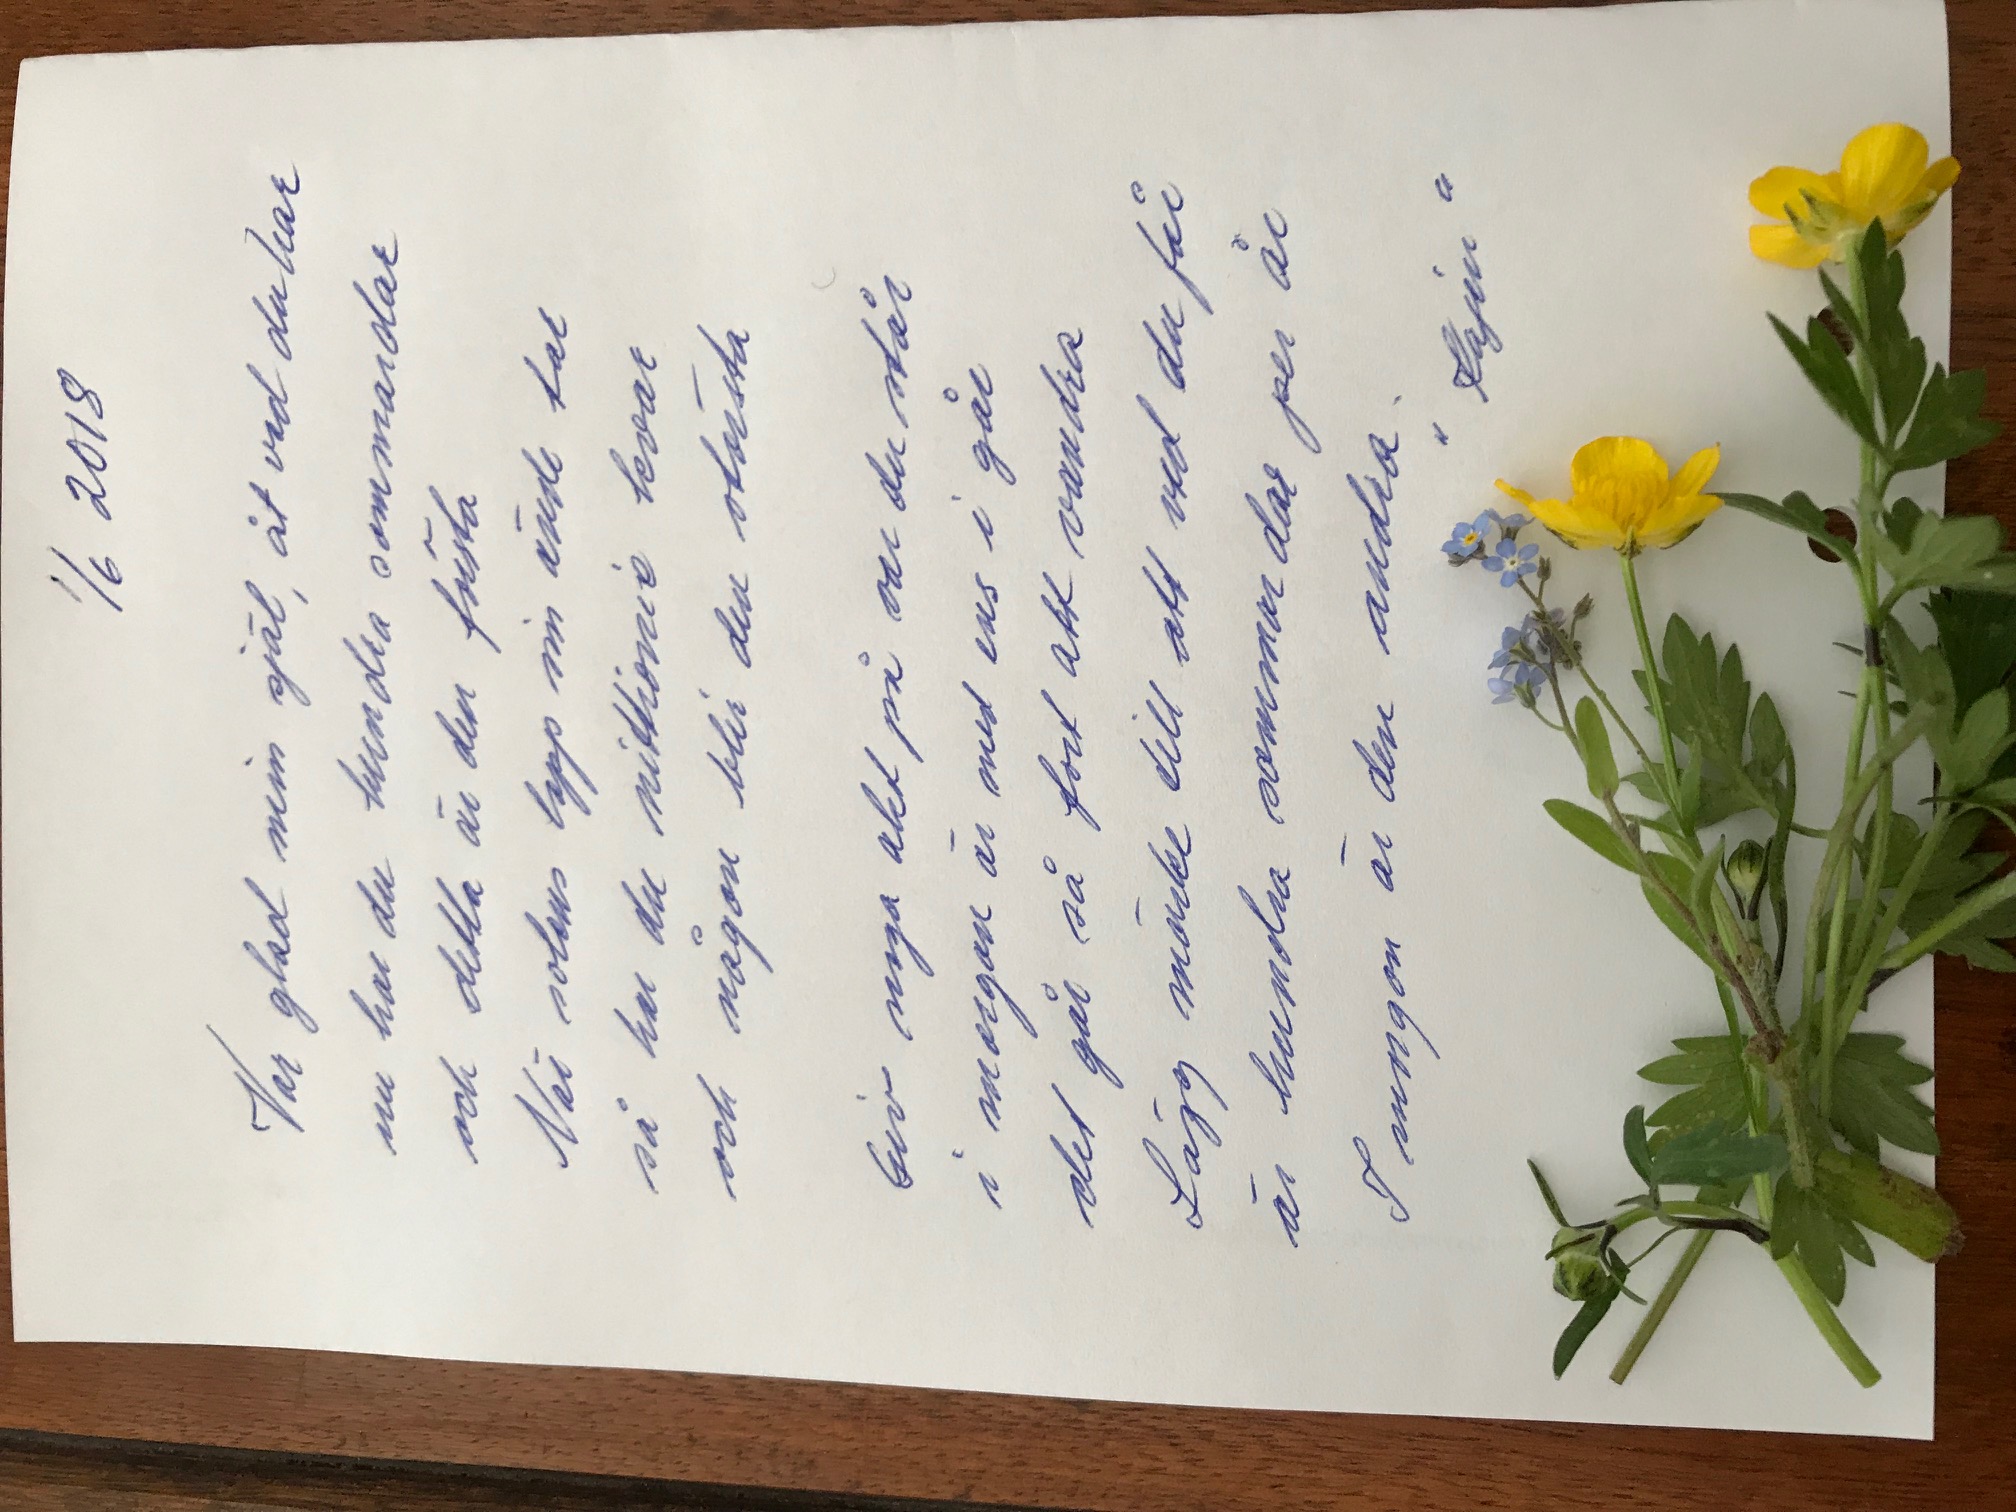 1/6 2018
Var glad min själ, åt vad du har
nu har du hundra sommardar
och detta är den första
När solens lopp sin ände tar
så har du nittionie kvar
och någon blir den största
Giv noga akt på var du står
i morgon är med ens i går
det går så fort att vandra
Lägg märke till att vad du får
är hundra sommardar per år
I morgon är den andra.
"Kajen"